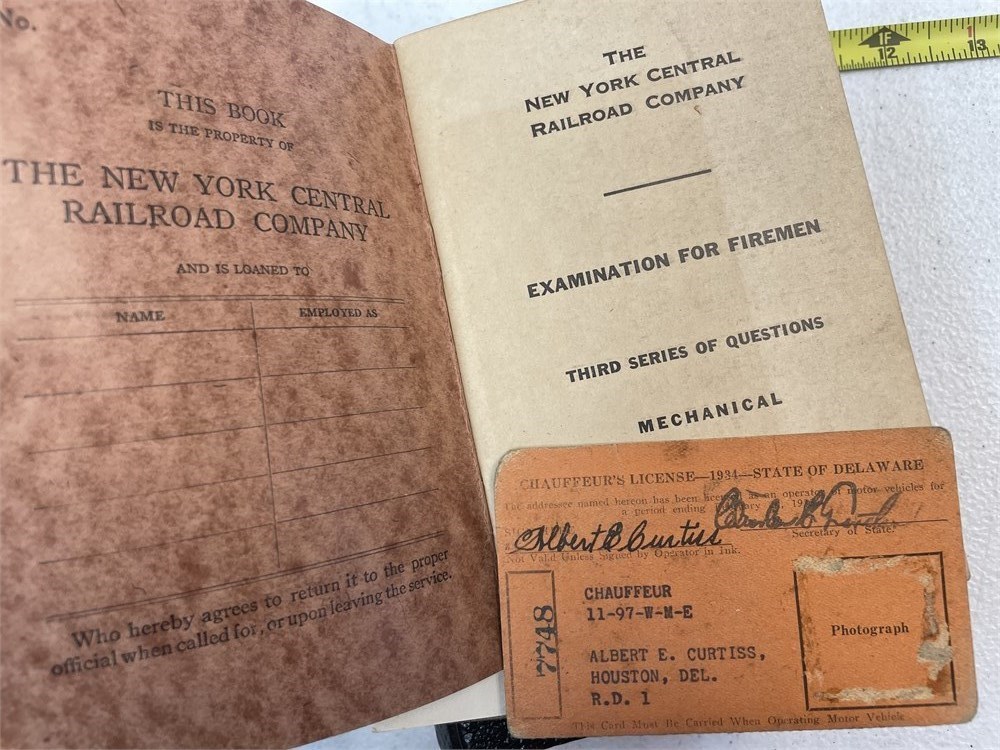 No.
THIS BOOK
IS THE PROPERTY OF
THE NEW YORK CENTRAL
RAILROAD COMPANY
AND IS LOANED TO
NAME EMPLOYED AS
Who hereby agrees to return it to the proper
official when called for, or upon leaving the service.
THE
NEW YORK CENTRAL
RAILROAD COMPANY
EXAMINATION FOR FIREMEN
THIRD SERIES OF QUESTIONS
MECHANICAL
CHAUFFEUR'S LICENSE—1934—STATE OF DELAWARE
The addressee named hereon has been as an operator motor vehicles for
a period ending
Albert E. Curtiss
Secretary of State.
Not Valid Unless Signed by Operator in Ink.
7748
CHAUFFEUR
11-97-W-M-E
ALBERT E. CURTISS,
HOUSTON, DEL.
R.D. 1
Photograph
This Card Must Be Carried When Operating Motor Vehicle
1F
12
13